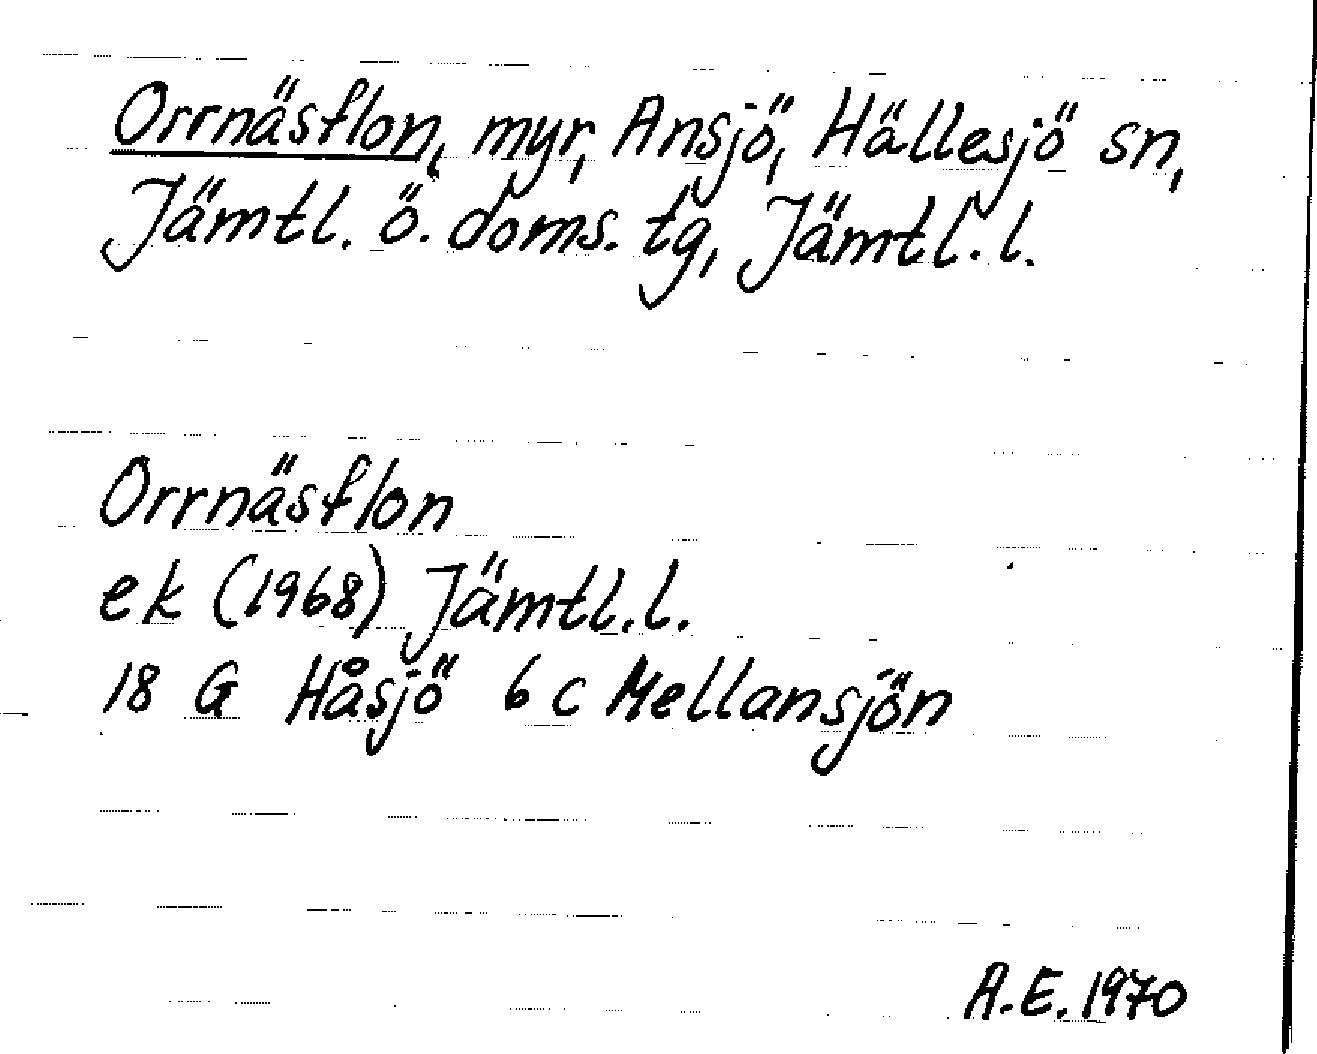 Orrnäsflon, myr, Ansjö, Hällesjö sn,
Jämtl. ö. doms. tg, Jämtl. l.
Orrnäsflon
ek (1968) Jämtl. l.
18 G Håsjö 6 c Mellansjön
A.E. 1970